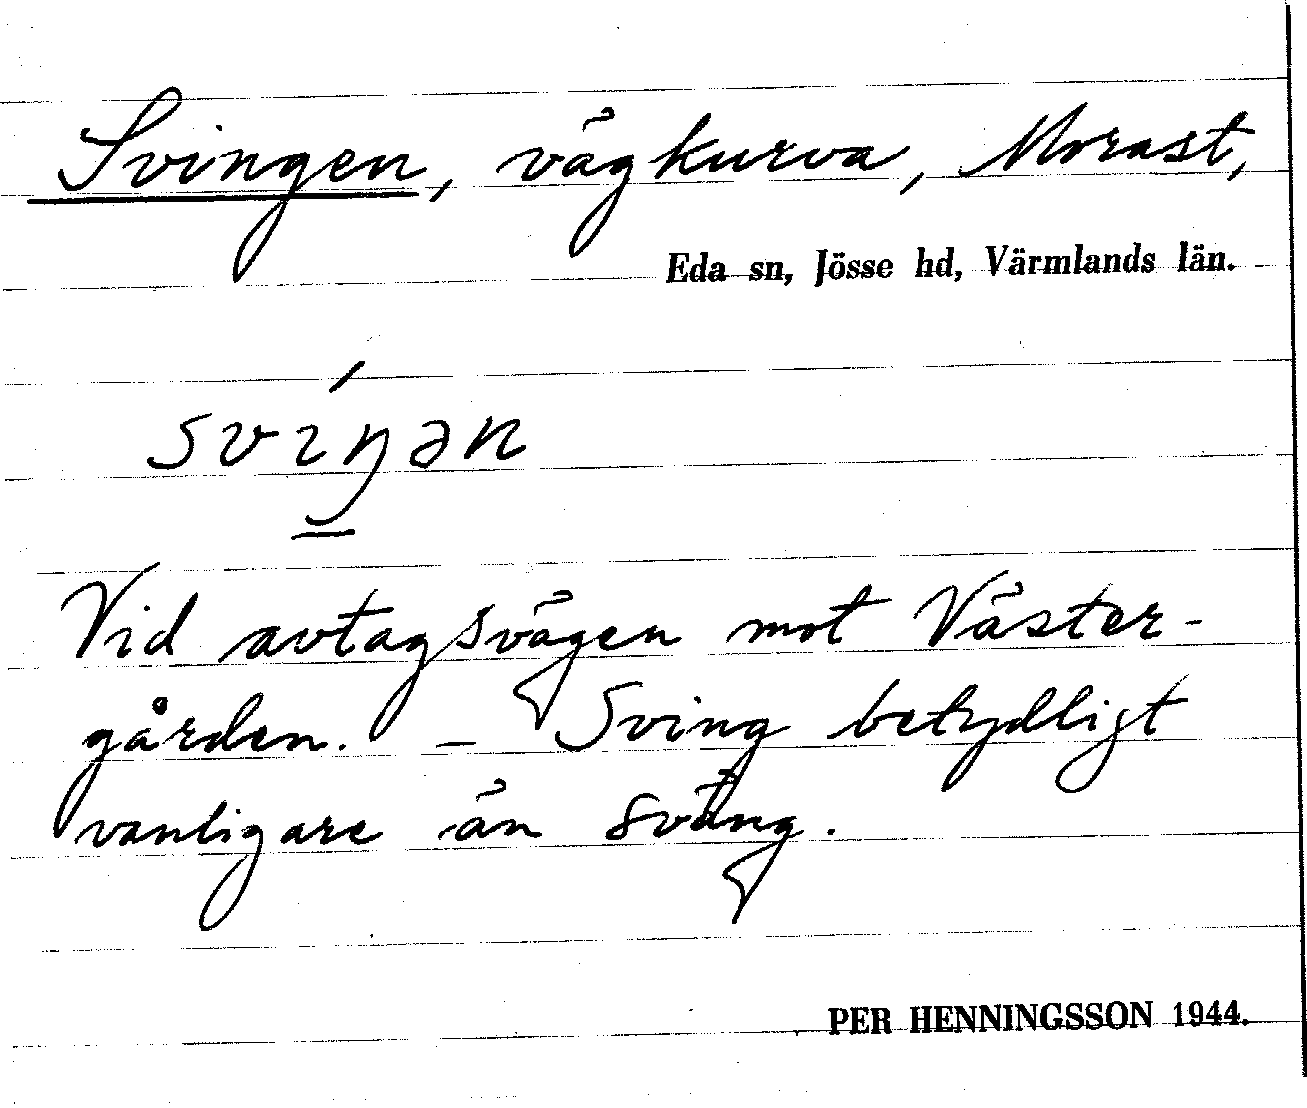 Svingen, vägkurva, Morast,
Eda sn, Jösse hd, Värmlands län.
svıŋ́ən
Vid avtagsvägen mot Väster-
gården. – Sving betydligt
vanligare än sväng.
PER HENNINGSSON 1944.